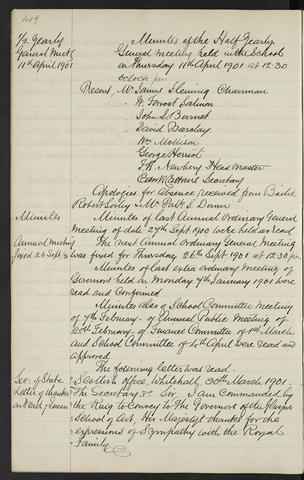 409
½ Yearly
General Meetg
11th April 1901
Minutes of the Half Yearly
General Meeting held in the School
on Thursday 11th April 1901 at 12.30
oclock p.m.
Present Mr James Fleming Chairman
W. Forrest Salmon
John J. Burnet
David Barclay
Wm Mollison
George Herriot
F. H. Newbery Head Master
Secretary
Apologies for absence received from Bailie
Robert Mr Patk S. Dunn
Minutes
Minutes of last Annual Ordinary General
Meeting of date 27th Sept 1900 were held as read
Annual Meeting
fixed 26 Sept /01
The next Annual Ordinary General Meeting
was fixed for Thursday 26th Sept 1901 at 12.30 p.m
Minutes of last extra ordinary Meeting of
Governors held on Monday 7th January 1901 were
read and confirmed.
Minutes also of School Committee Meeting
of 7th February - of Annual Public Meeting of
February - of Finance Committee of 1st March
and School Committee of 4th April were read and
approved
The following Letter was read.
Sec: of State
Letter of thanks
on Death of Queen
Scottish Office, Whitehall, 30th March 1901.
The Secretary &c Sir, I am Commanded by
the King to Convey to the Governors of the Glasgow
School of Art, His Majestys thanks for the
expressions of Sympathy with the Royal
Family